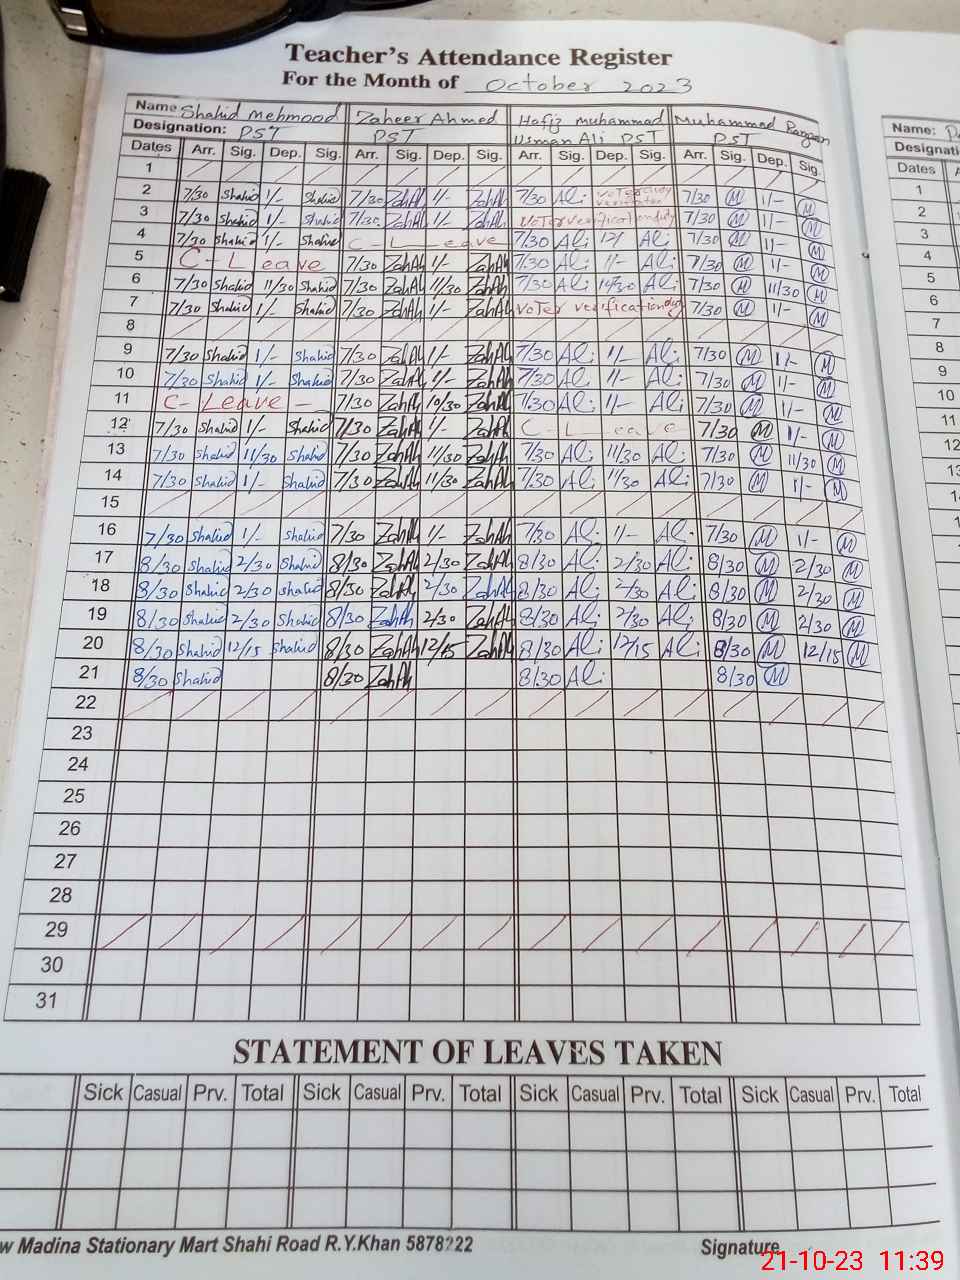 Teacher's Attendance Register
For the Month of October 2023
Name: Shahid Mehmood Zaheer Ahmed Hafiz muhammad Muhammad
Designation: PST PST Usman Ali PST PST
Dates Arr. Sig. Dep. Sig. Arr. Sig. Dep. Sig. Arr. Sig. Dep. Sig. Arr. Sig. Dep. Sig.
1
2 7/30 Shahid 1/- Shahid 7/30 ZahAh 1/- ZahAh 7/30 Ali voter duty verification 7/30 M 1/- M
3 7/30 Shahid 1/- Shahid 7/30 ZahAh 1/- ZahAh voter verification duty 7/30 M 1/- M
4 7/30 Shahid 1/- Shahid C-Leave 7/30 Ali 12/ Ali 7/30 M 1/- M
5 C-Leave 7/30 ZahAh 1/- ZahAh 7/30 Ali 1/- Ali 7/30 M 1/- M
6 7/30 Shahid 11/30 Shahid 7/30 ZahAh 11/30 ZahAh 7/30 Ali 11/30 Ali 7/30 M 11/30 M
7 7/30 Shahid 1/- Shahid 7/30 ZahAh 1/- ZahAh voter verification duty 7/30 M 1/- M
8
9 7/30 Shahid 1/- Shahid 7/30 ZahAh 1/- ZahAh 7/30 Ali 1/- Ali 7/30 M 1/- M
10 7/30 Shahid 1/- Shahid 7/30 ZahAh 1/- ZahAh 7/30 Ali 1/- Ali 7/30 M 1/- M
11 C-Leave - 7/30 ZahAh 10/30 ZahAh 7/30 Ali 1/- Ali 7/30 M 1/- M
12 7/30 Shahid 1/- Shahid 7/30 ZahAh 1/- ZahAh C-Leave 7/30 M 1/- M
13 7/30 Shahid 11/30 Shahid 7/30 ZahAh 11/30 ZahAh 7/30 Ali 11/30 Ali 7/30 M 11/30 M
14 7/30 Shahid 1/- Shahid 7/30 ZahAh 11/30 ZahAh 7/30 Ali 11/30 Ali 7/30 M 1/- M
15
16 7/30 Shahid 1/- Shahid 7/30 ZahAh 1/- ZahAh 7/30 Ali 1/- Ali 7/30 M 1/- M
17 8/30 Shahid 2/30 Shahid 8/30 ZahAh 2/30 ZahAh 8/30 Ali 2/30 Ali 8/30 M 2/30 M
18 8/30 Shahid 2/30 Shahid 8/30 ZahAh 2/30 ZahAh 8/30 Ali 2/30 Ali 8/30 M 2/30 M
19 8/30 Shahid 2/30 Shahid 8/30 ZahAh 2/30 ZahAh 8/30 Ali 2/30 Ali 8/30 M 2/30 M
20 8/30 Shahid 12/15 Shahid 8/30 ZahAh 12/15 ZahAh 8/30 Ali 12/15 Ali 8/30 M 12/15 M
21 8/30 Shahid 8/30 ZahAh 8/30 Ali 8/30 M
22
23
24
25
26
27
28
29
30
31
STATEMENT OF LEAVES TAKEN
Sick Casual Prv. Total Sick Casual Prv. Total Sick Casual Prv. Total Sick Casual Prv. Total
w Madina Stationary Mart Shahi Road R.Y.Khan 5878222 Signature
Name:
Designati
Dates
1
2
3
4
5
6
7
8
9
10
11
12
13
21-10-23 11:39